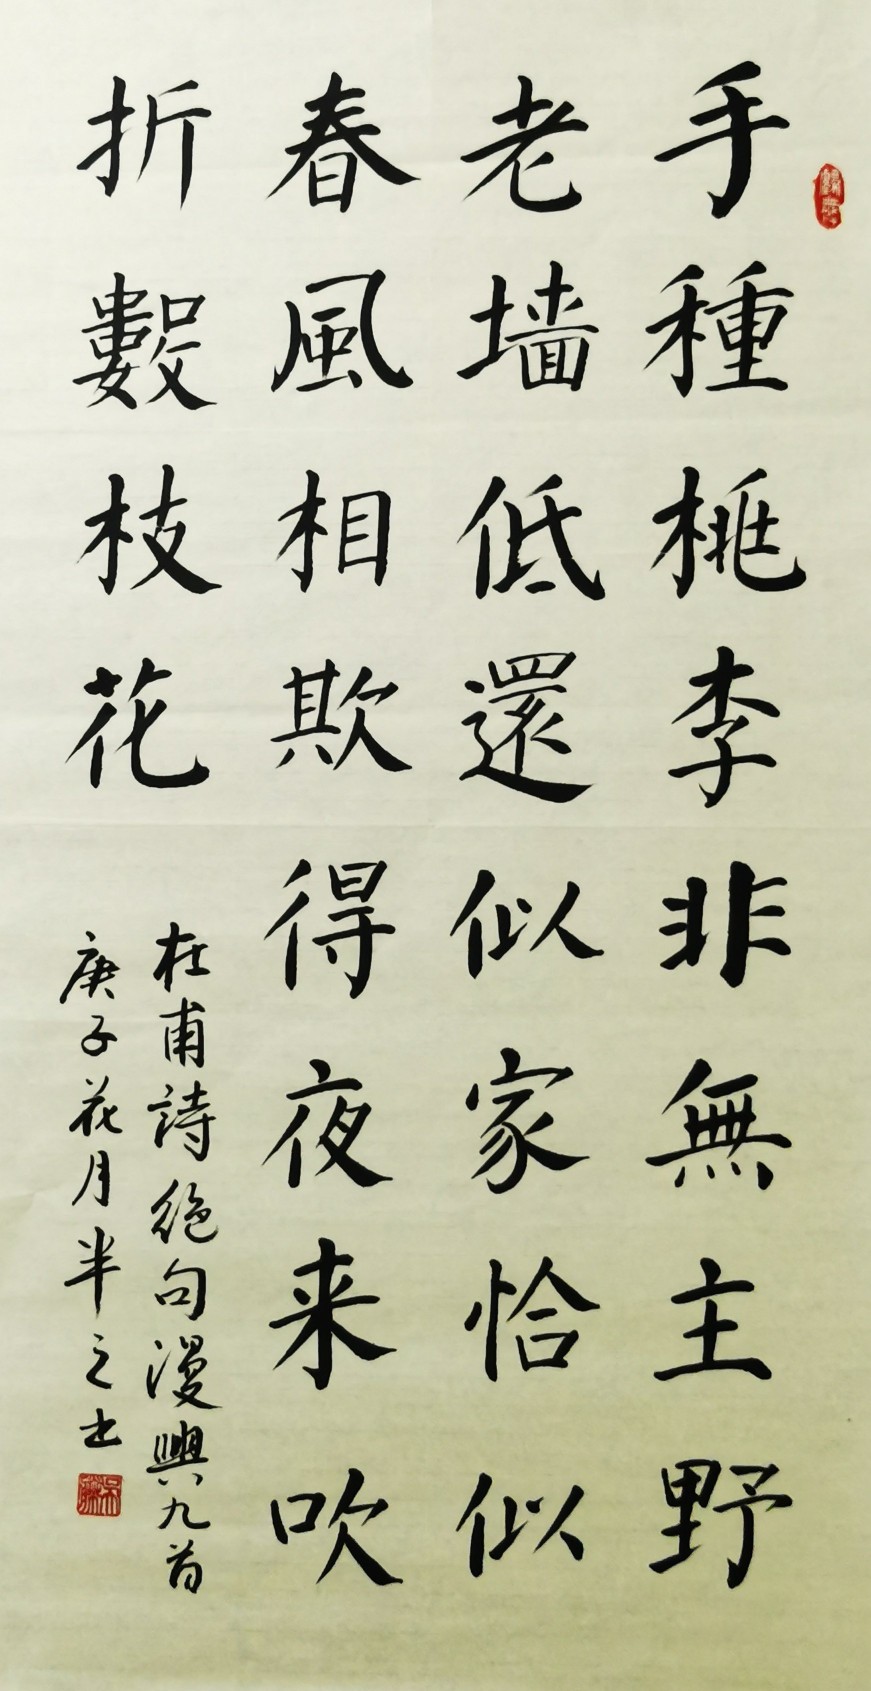 手種桃李非無主野
老墙低還似家恰似
春風相欺得夜来吹
折數枝花
杜甫詩絶句漫興九首
庚子花月半之书